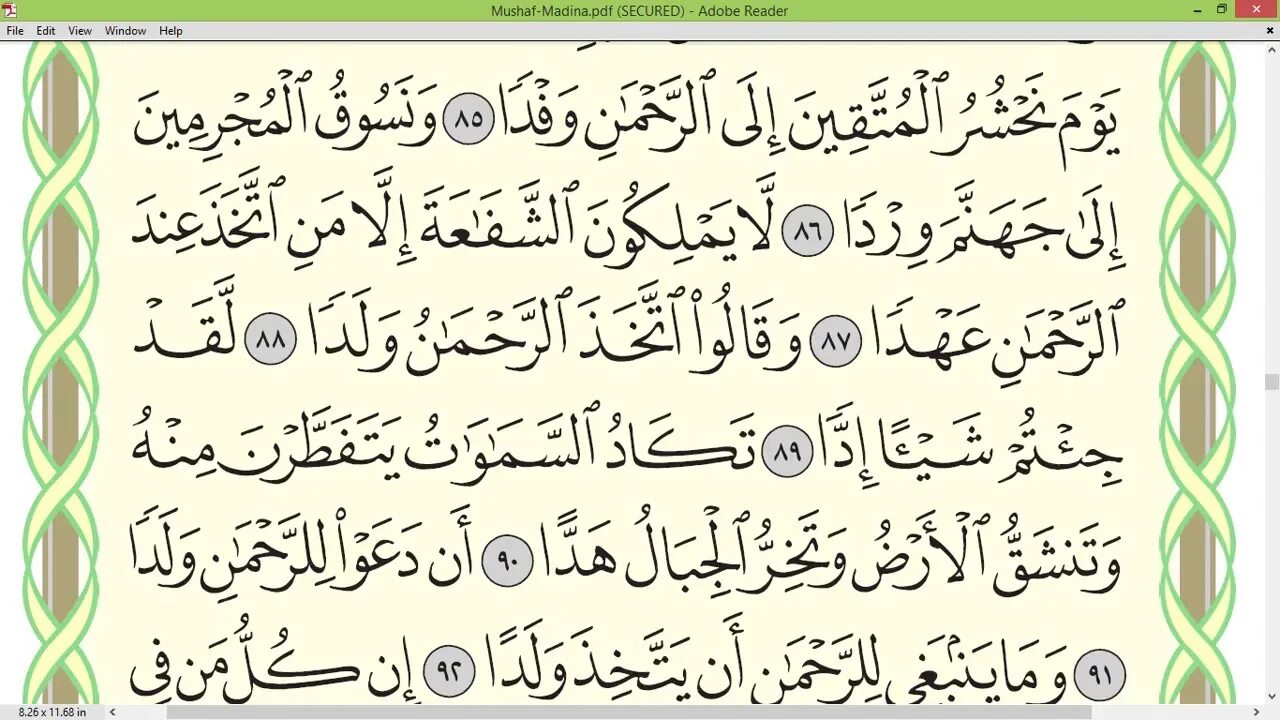 Mushaf-Madina.pdf (SECURED) - Adobe Reader
File Edit View Window Help
يَوْمَ نَحْشُرُ ٱلْمُتَّقِينَ إِلَى ٱلرَّحْمَٰنِ وَفْدًا ٨٥ وَنَسُوقُ ٱلْمُجْرِمِينَ
إِلَىٰ جَهَنَّمَ وِرْدًا ٨٦ لَّا يَمْلِكُونَ ٱلشَّفَٰعَةَ إِلَّا مَنِ ٱتَّخَذَ عِندَ
ٱلرَّحْمَٰنِ عَهْدًا ٨٧ وَقَالُوا۟ ٱتَّخَذَ ٱلرَّحْمَٰنُ وَلَدًا ٨٨ لَّقَدْ
جِئْتُمْ شَيْـًٔا إِدًّا ٨٩ تَكَادُ ٱلسَّمَٰوَٰتُ يَتَفَطَّرْنَ مِنْهُ
وَتَنشَقُّ ٱلْأَرْضُ وَتَخِرُّ ٱلْجِبَالُ هَدًّا ٩٠ أَن دَعَوْا۟ لِلرَّحْمَٰنِ وَلَدًا
٩١ وَمَا يَنۢبَغِى لِلرَّحْمَٰنِ أَن يَتَّخِذَ وَلَدًا ٩٢ إِن كُلُّ مَن فِى
8.26 x 11.68 in